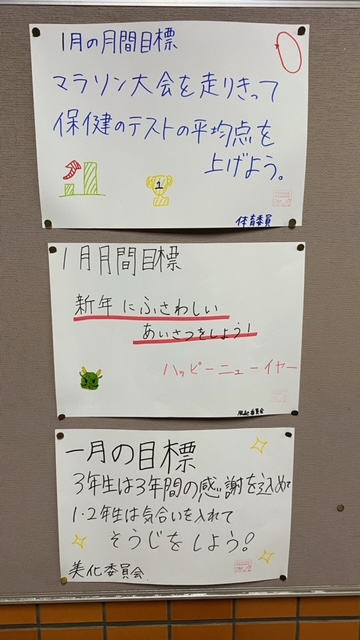 1月の月間目標
マラソン大会を走りきって
保健のテストの平均点を
上げよう。
1
体育委員
1月月間目標
新年にふさわしい
あいさつをしよう!
ハッピーニューイヤー
風紀委員会
一月の目標
3年生は3年間の感謝を込めて
1・2年生は気合いを入れて
そうじをしよう!
美化委員会